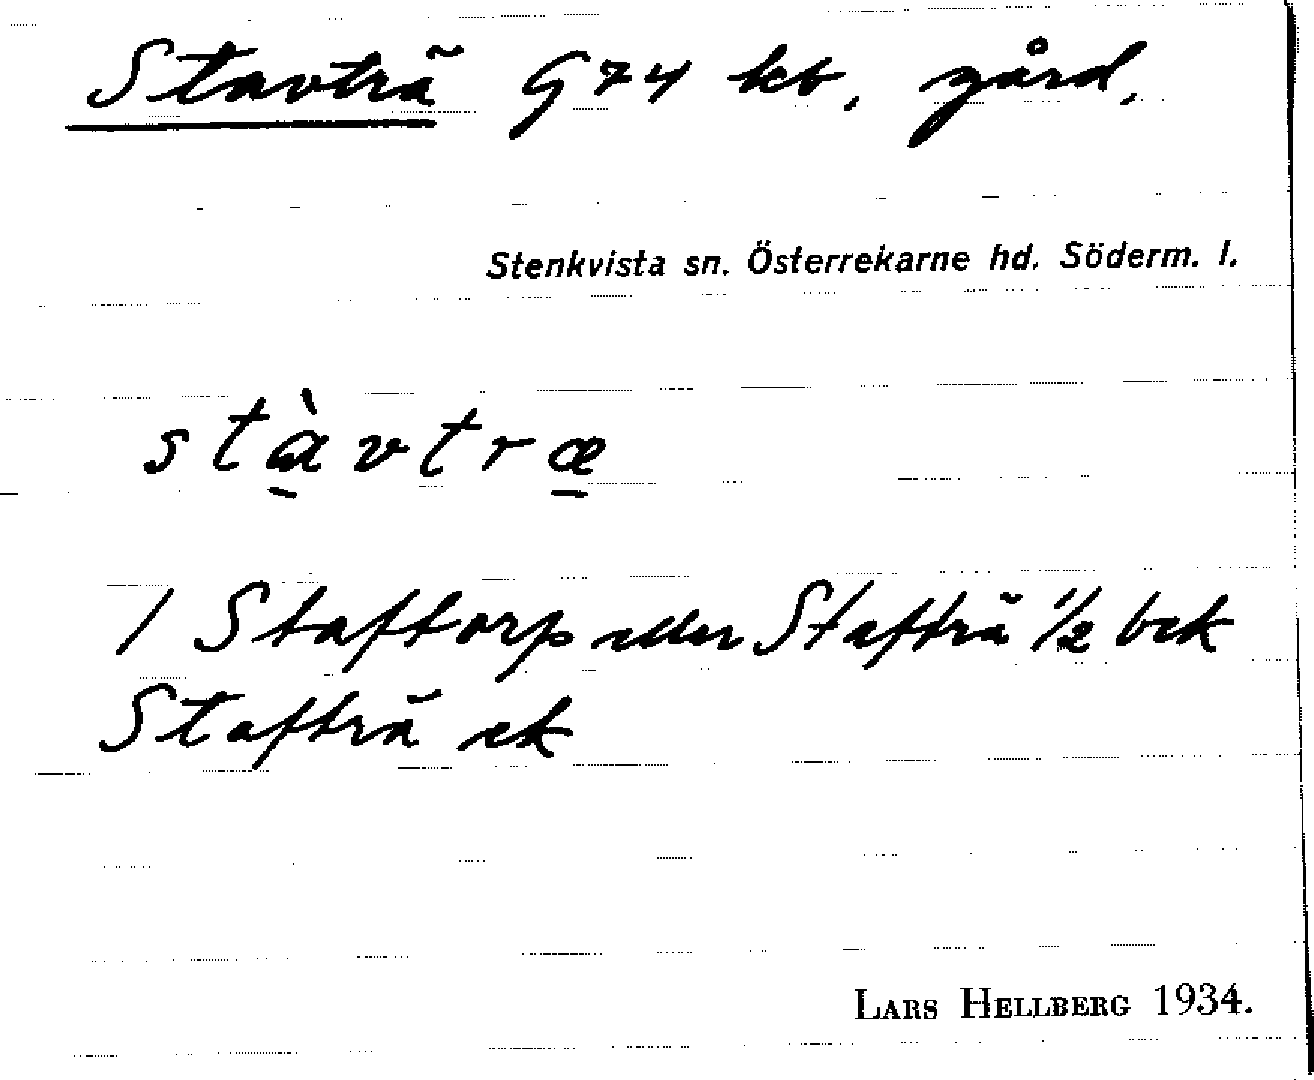 Stavträ G74 kb, gård.
Stenkvista sn. Österrekarne hd. Söderm. l.
stàvtræ
/ Staftorp eller Stafträ 1/2 bek
Stafträ ek
LARS HELLBERG 1934.